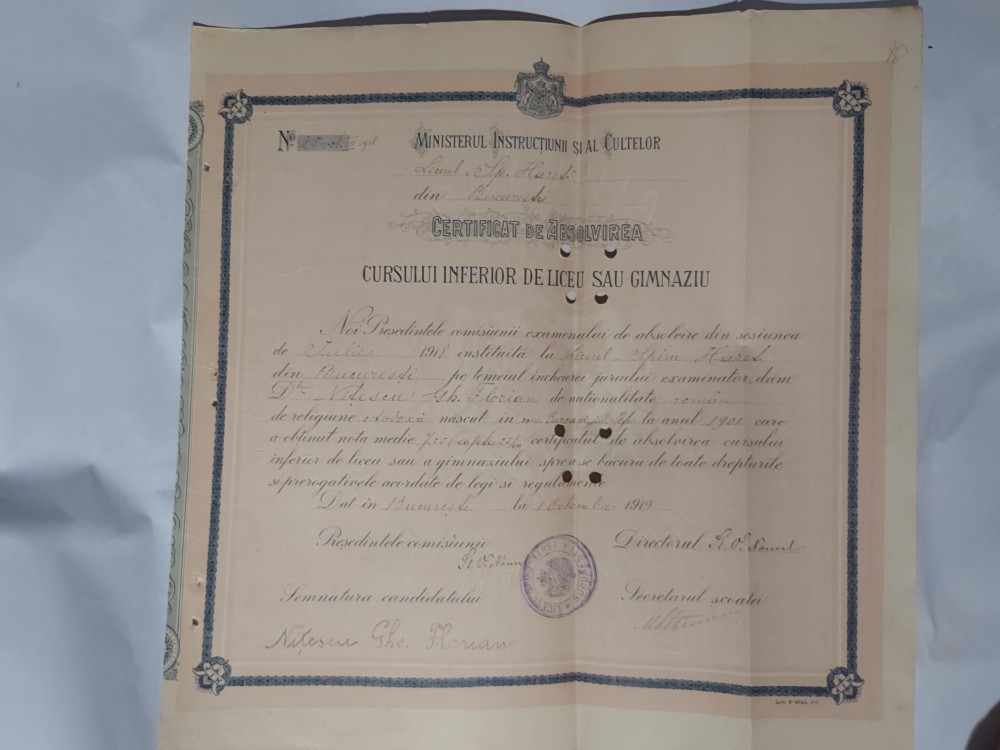 No 1918
MINISTERUL INSTRUCȚIUNII ȘI AL CULTELOR
Liceul „Sp. Haret"
din București
CERTIFICAT DE ABSOLVIREA
CURSULUI INFERIOR DE LICEU SAU GIMNAZIU
Noi Președintele comisiunii examenului de absolvire din sesiunea
de Iulie 1918 instituită la Liceul Spiru Haret
din București pe temeiul încheierei juriului examinator, dăm
Dlui Nițescu Gh. Florian de naționalitate română
de religiune ortodoxă născut în com. la anul 1901 care
a obținut nota medie 7.27 (șapte 27/100) certificatul de absolvirea cursului
inferior de liceu sau a gimnaziului spre a se bucura de toate drepturile
și prerogativele acordate de legi și regulamente
Dat în București la 1 Octombrie 1919
Președintele comisiunii Directorul
Semnatura candidatului Secretarul școalei
Nițescu Ghe. Florian